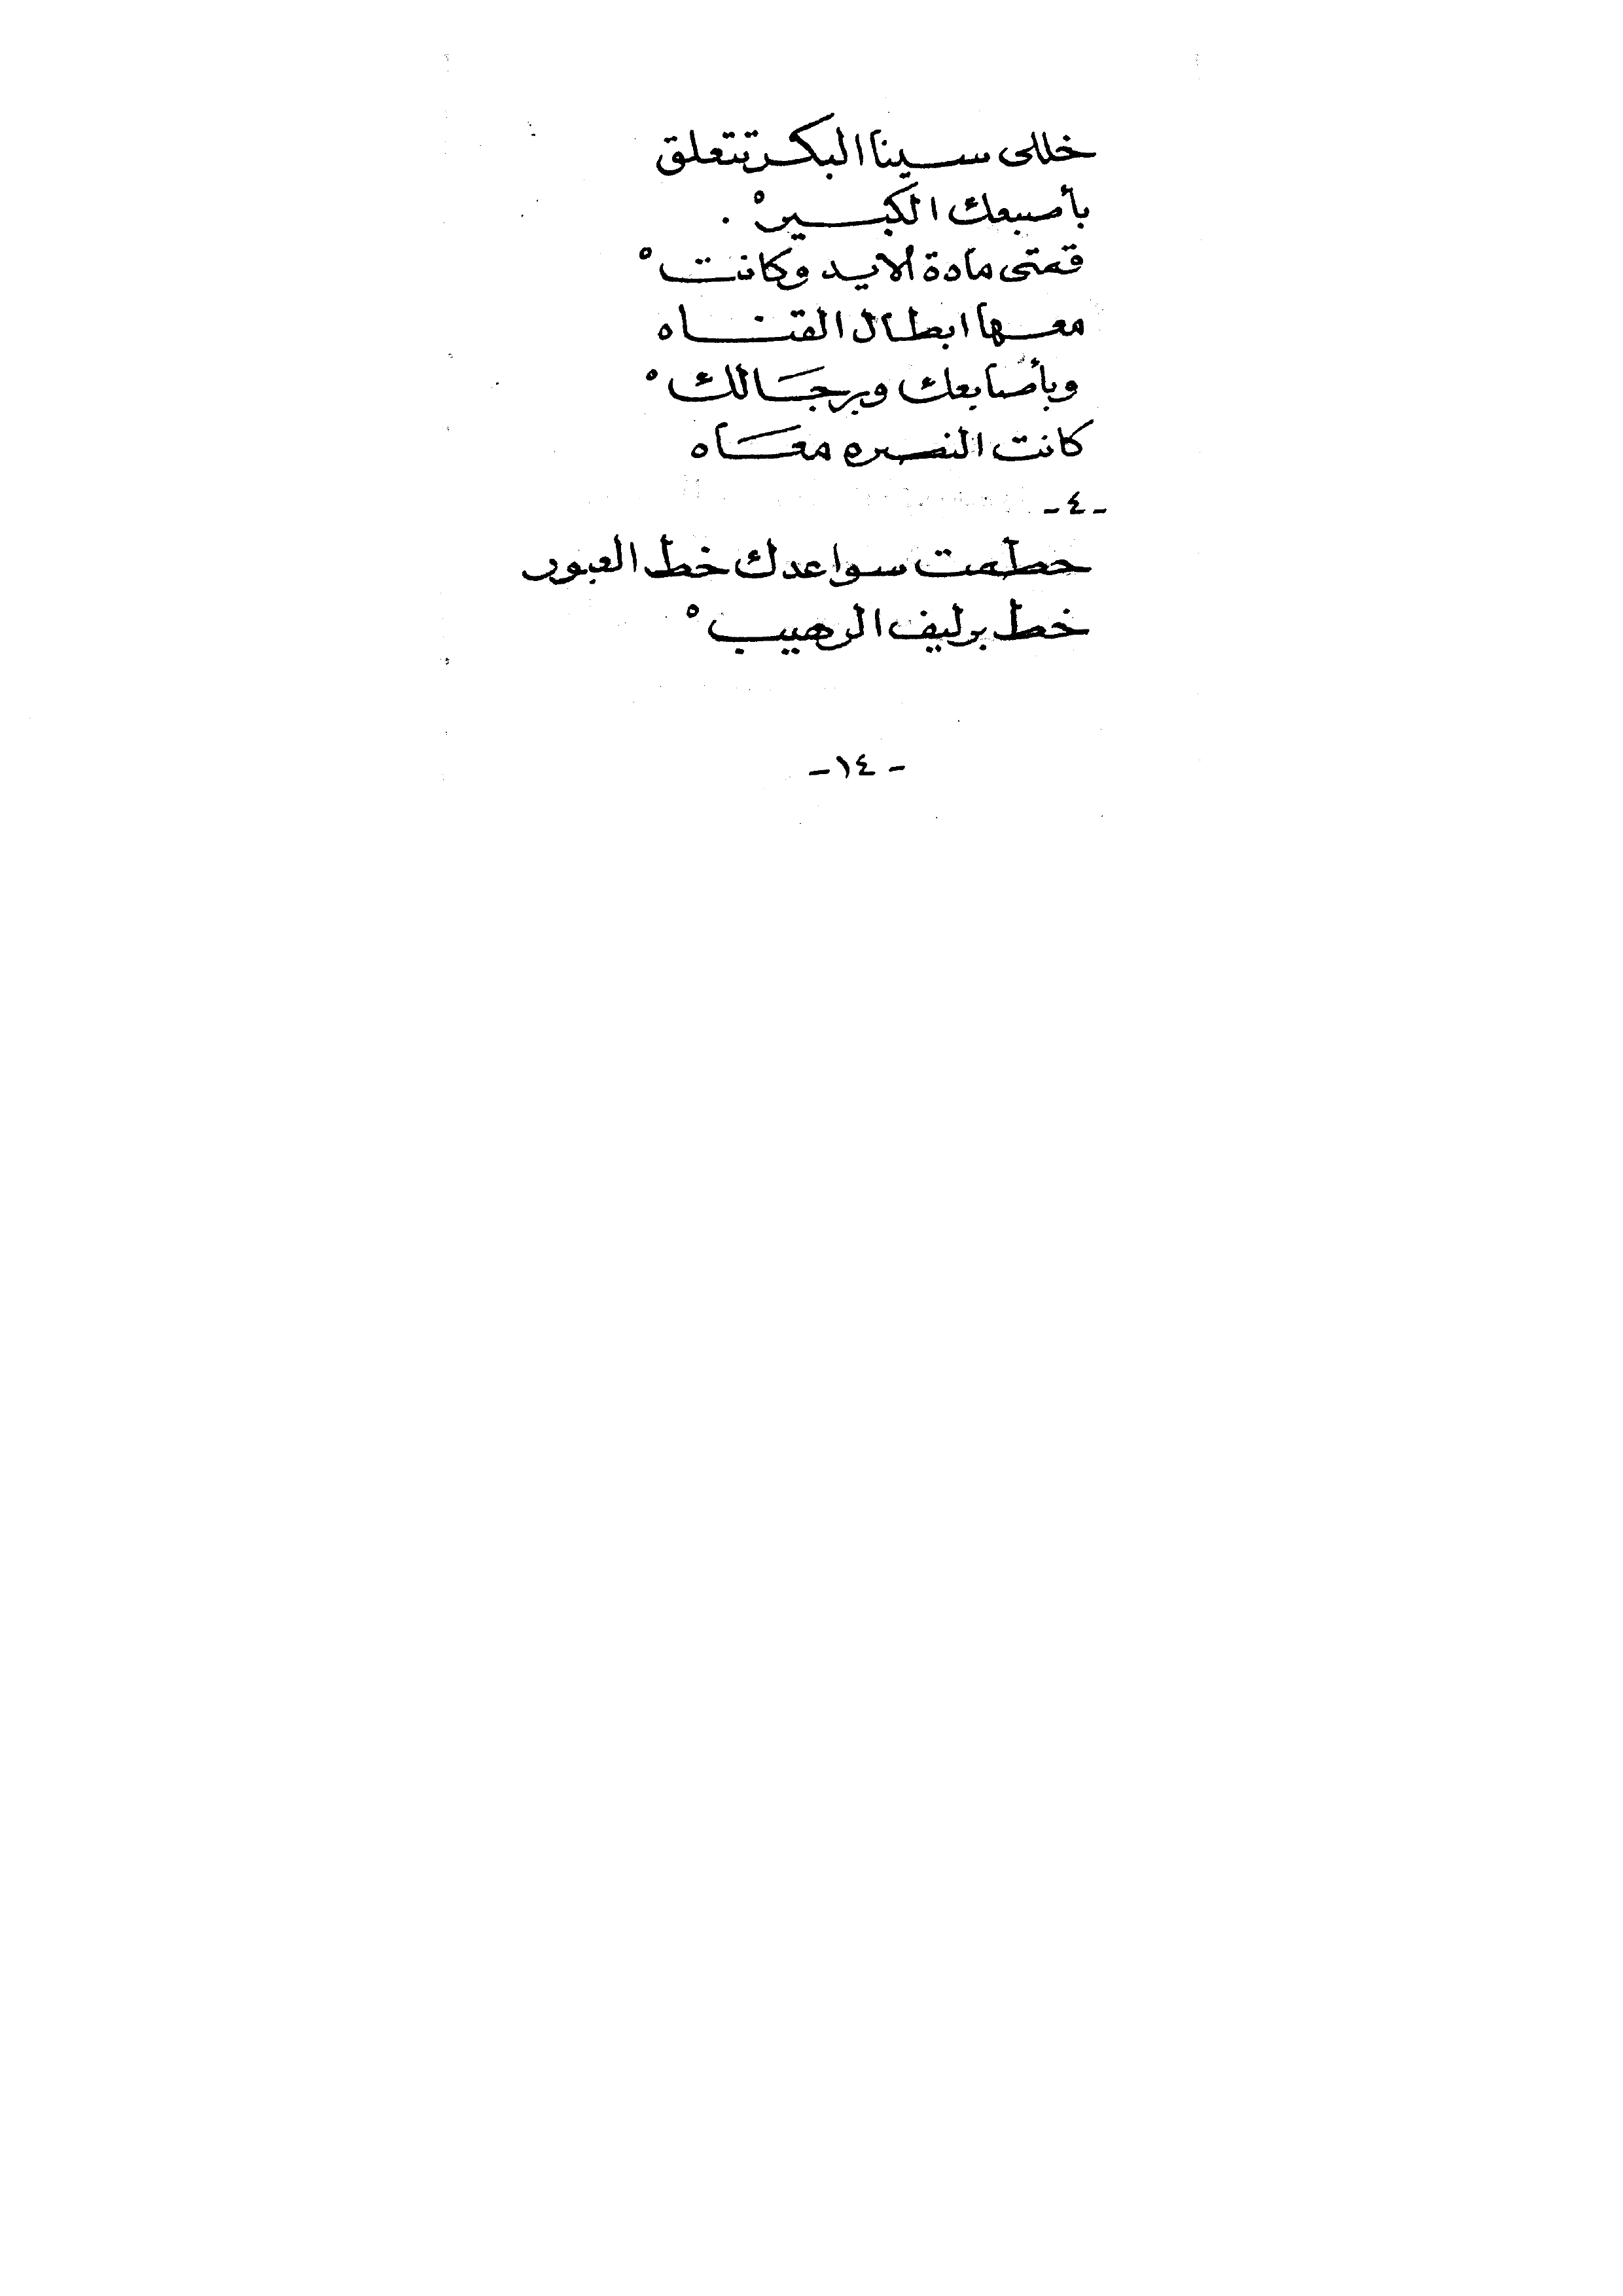 خللى سينا البكر تتعلق
بأصبعك الكبيرْ .
قمتى مادة الايد وكانتْ
معها ابطال القناه
وبأصابعك وبرجالكْ
كانت النصره معاه
-٤-
حطمت سواعدك خط العبور
خط برليف الرهيبْ
-١٤-